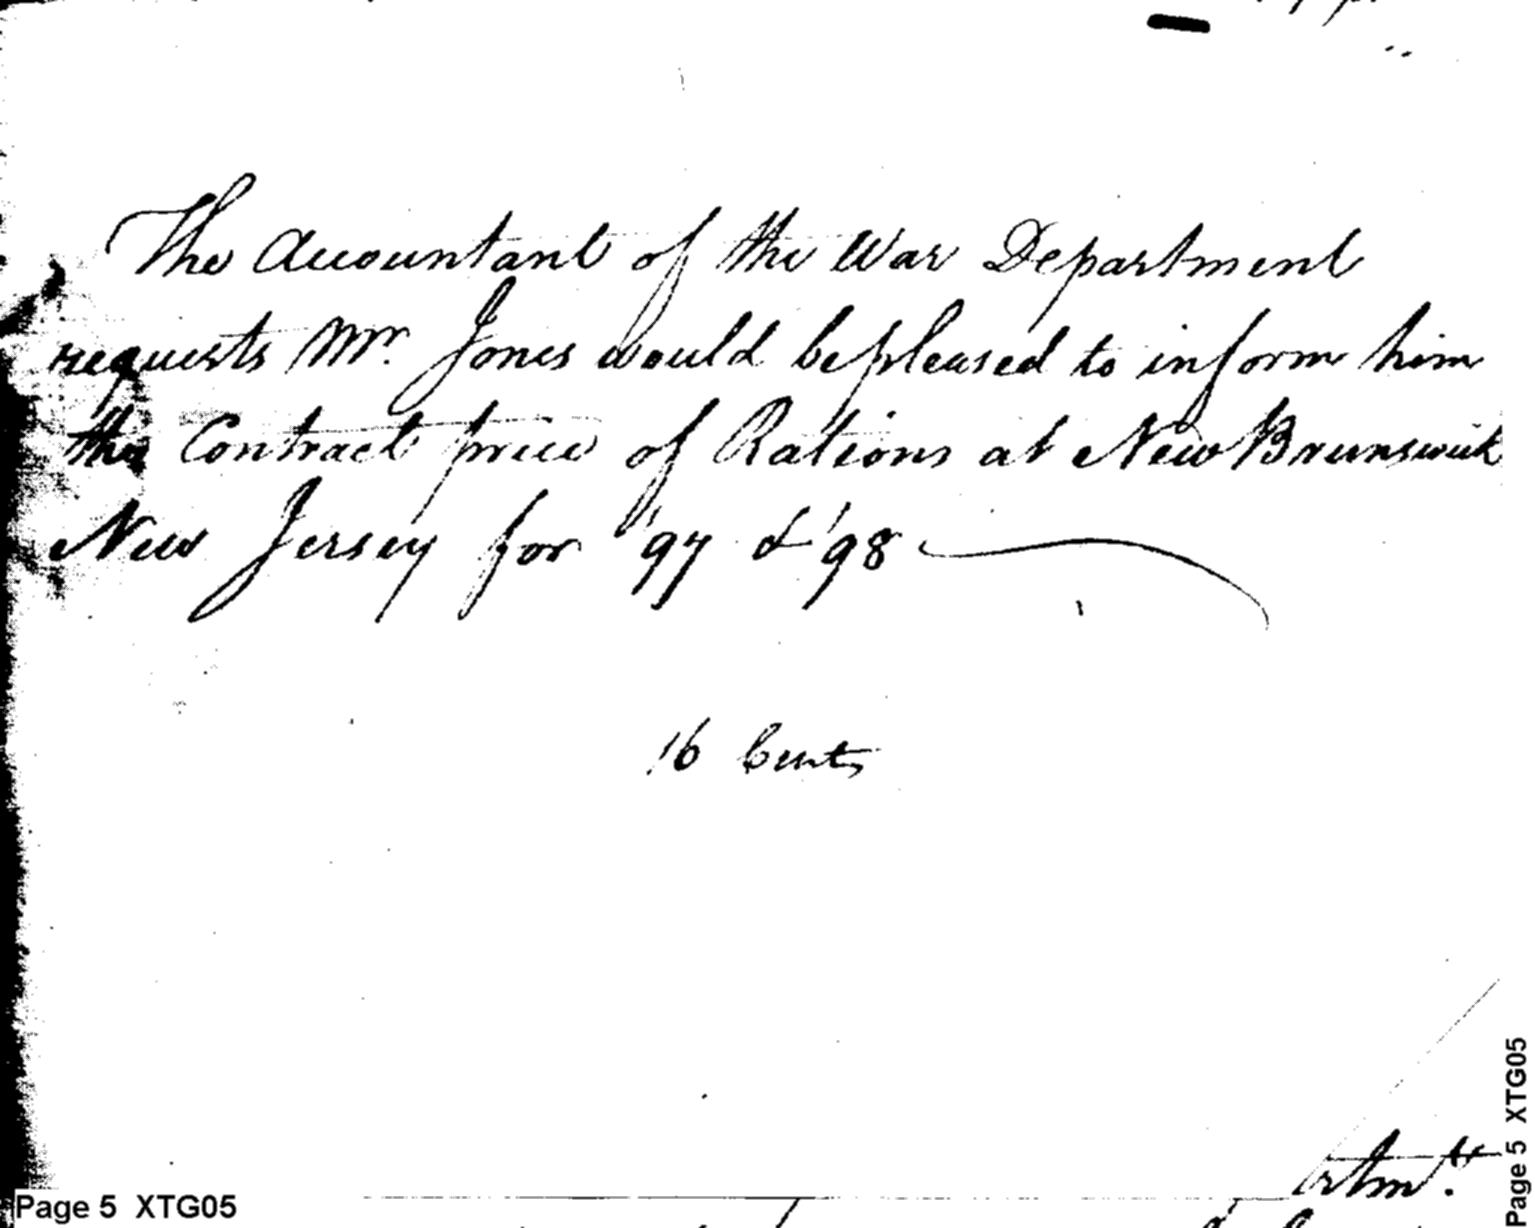 The Accountant of the War Department
requests Mr. Jones would be pleased to inform him
the Contract price of Rations at New Brunswick
New Jersey for '97 & '98
16 Cents
Page 5 XTG05
Page 5 XTG05